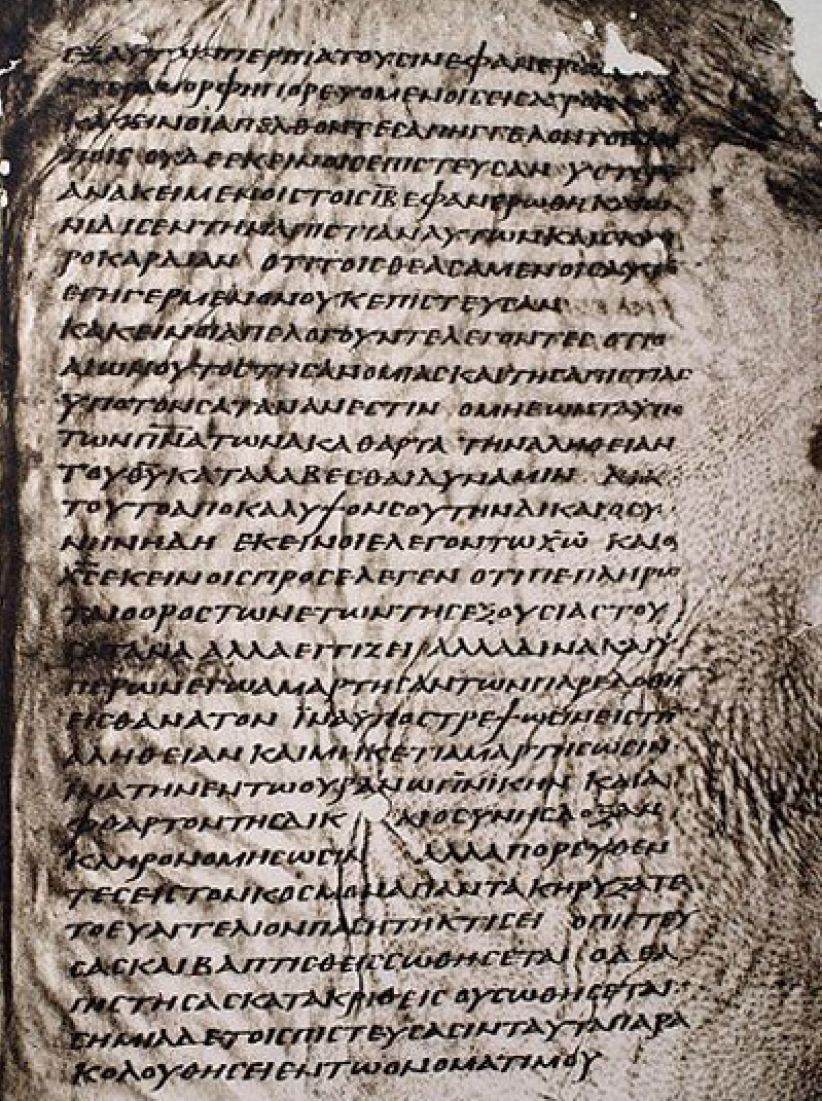 ΕΞΑΥΤΩΝΠΕΡΠΙΑΤΟΥϹΙΝΕΦΑΝΕΡ
ΕΤΕΡΑΜΟΡΦΗΠΟΡΕΥΟΜΕΝΟΙϹΕΙϹΑΓΡΟΝ
ΚΑΚΕΙΝΟΙΑΠΕΛΘΟΝΤΕϹΑΠΗΓΓΕΛΟΝΤΟΙϹ
ΠΟΙϹ ΟΥΔΕΕΚΕΙΝΟΙϹΕΠΙϹΤΕΥϹΑΝ ΥϹΤΕΡ
ΑΝΑΚΕΙΜΕΝΟΙϹΤΟΙϹΙ̅Β̅ΕΦΑΝΕΡΩΘΗΚΑΙΩ
ΝΙΔΙϹΕΝΤΗΝΑΠΙϹΤΙΑΝΑΥΤΩΝΚΑΙϹΚΛΗ
ΡΟΚΑΡΔΙΑΝ ΟΤΙΤΟΙϹΘΕΑϹΑΜΕΝΟΙϹΑΥΤΟ
ΕΓΗΓΕΡΜΕΝΟΝΟΥΚΕΠΙϹΤΕΥϹΑΝ
ΚΑΚΕΙΝΟΙΑΠΕΛΟΓΟΥΝΤΕΛΕΓΟΝΤΕϹ ΟΤΙΟ
ΑΙΩΝΟΥΤΟϹΤΗϹΑΝΟΜΙΑϹΚΑΙΤΗϹΑΠΙϹΤΙΑϹ
ΥΠΟΤΟΝϹΑΤΑΝΑΝΕϹΤΙΝ ΟΜΗΕΩΝΤΑΥΠΟ
ΤΩΝΠ̅Ν̅ΑΤΩΝΑΚΑΘΑΡΤΑ ΤΗΝΑΛΗΘΕΙΑΝ
ΤΟΥΘ̅Υ̅ΚΑΤΑΛΑΒΕϹΘΑΙΔΥΝΑΜΙΝ ΔΙΑ
ΤΟΥΤΟΑΠΟΚΑΛΥΨΟΝϹΟΥΤΗΝΔΙΚΑΙΟϹΥ
ΝΗΝΗΔΗ ΕΚΕΙΝΟΙΕΛΕΓΟΝΤΩΧ̅Ω̅ ΚΑΙΟ
Χ̅Ϲ̅ΕΚΕΙΝΟΙϹΠΡΟϹΕΛΕΓΕΝ ΟΤΙΠΕΠΛΗΡΩ
ΤΑΙΟΟΡΟϹΤΩΝΕΤΩΝΤΗϹΕΞΟΥϹΙΑϹΤΟΥ
ϹΑΤΑΝΑ ΑΛΛΑΕΓΓΙΖΕΙΑΛΛΑΔΙΝΑΚΑΙΥ
ΠΕΡΩΝΕΓΩΑΜΑΡΤΗϹΑΝΤΩΝΠΑΡΕΔΟΘΗ
ΕΙϹΘΑΝΑΤΟΝ ΙΝΑΥΠΟϹΤΡΕΨΩϹΙΝΕΙϹΤΗ
ΑΛΗΘΕΙΑΝ ΚΑΙΜΗΚΕΤΙΑΜΑΡΤΗϹΩϹΙΝ
ΙΝΑΤΗΝΕΝΤΩΟΥΡΑΝΩΠ̅Ν̅ΙΚΗΝ ΚΑΙΑ
ΦΘΑΡΤΟΝΤΗϹΔΙΚΑΙΟϹΥΝΗϹΔΟΞΑΝ
ΚΛΗΡΟΝΟΜΗϹΩϹΙΝ ΑΛΛΑΠΟΡΕΥΘΕΝ
ΤΕϹΕΙϹΤΟΝΚΟϹΜΟΝΑΠΑΝΤΑΚΗΡΥΞΑΤΕ
ΤΟΕΥΑΓΓΕΛΙΟΝΠΑϹΗΤΗΚΤΙϹΕΙ ΟΠΙϹΤΕΥ
ϹΑϹΚΑΙΒΑΠΤΙϹΘΕΙϹϹΩΘΗϹΕΤΑΙ ΟΔΕΑ
ΠΙϹΤΗϹΑϹΚΑΤΑΚΡΙΘΕΙϹ ΟΥϹΩΘΗϹΕΤΑΙ
ϹΗΜΙΑΔΕΤΟΙϹΠΙϹΤΕΥϹΑϹΙΝΤΑΥΤΑΠΑΡΑ
ΚΟΛΟΥΘΗϹΕΙΕΝΤΩΟΝΟΜΑΤΙΜΟΥ